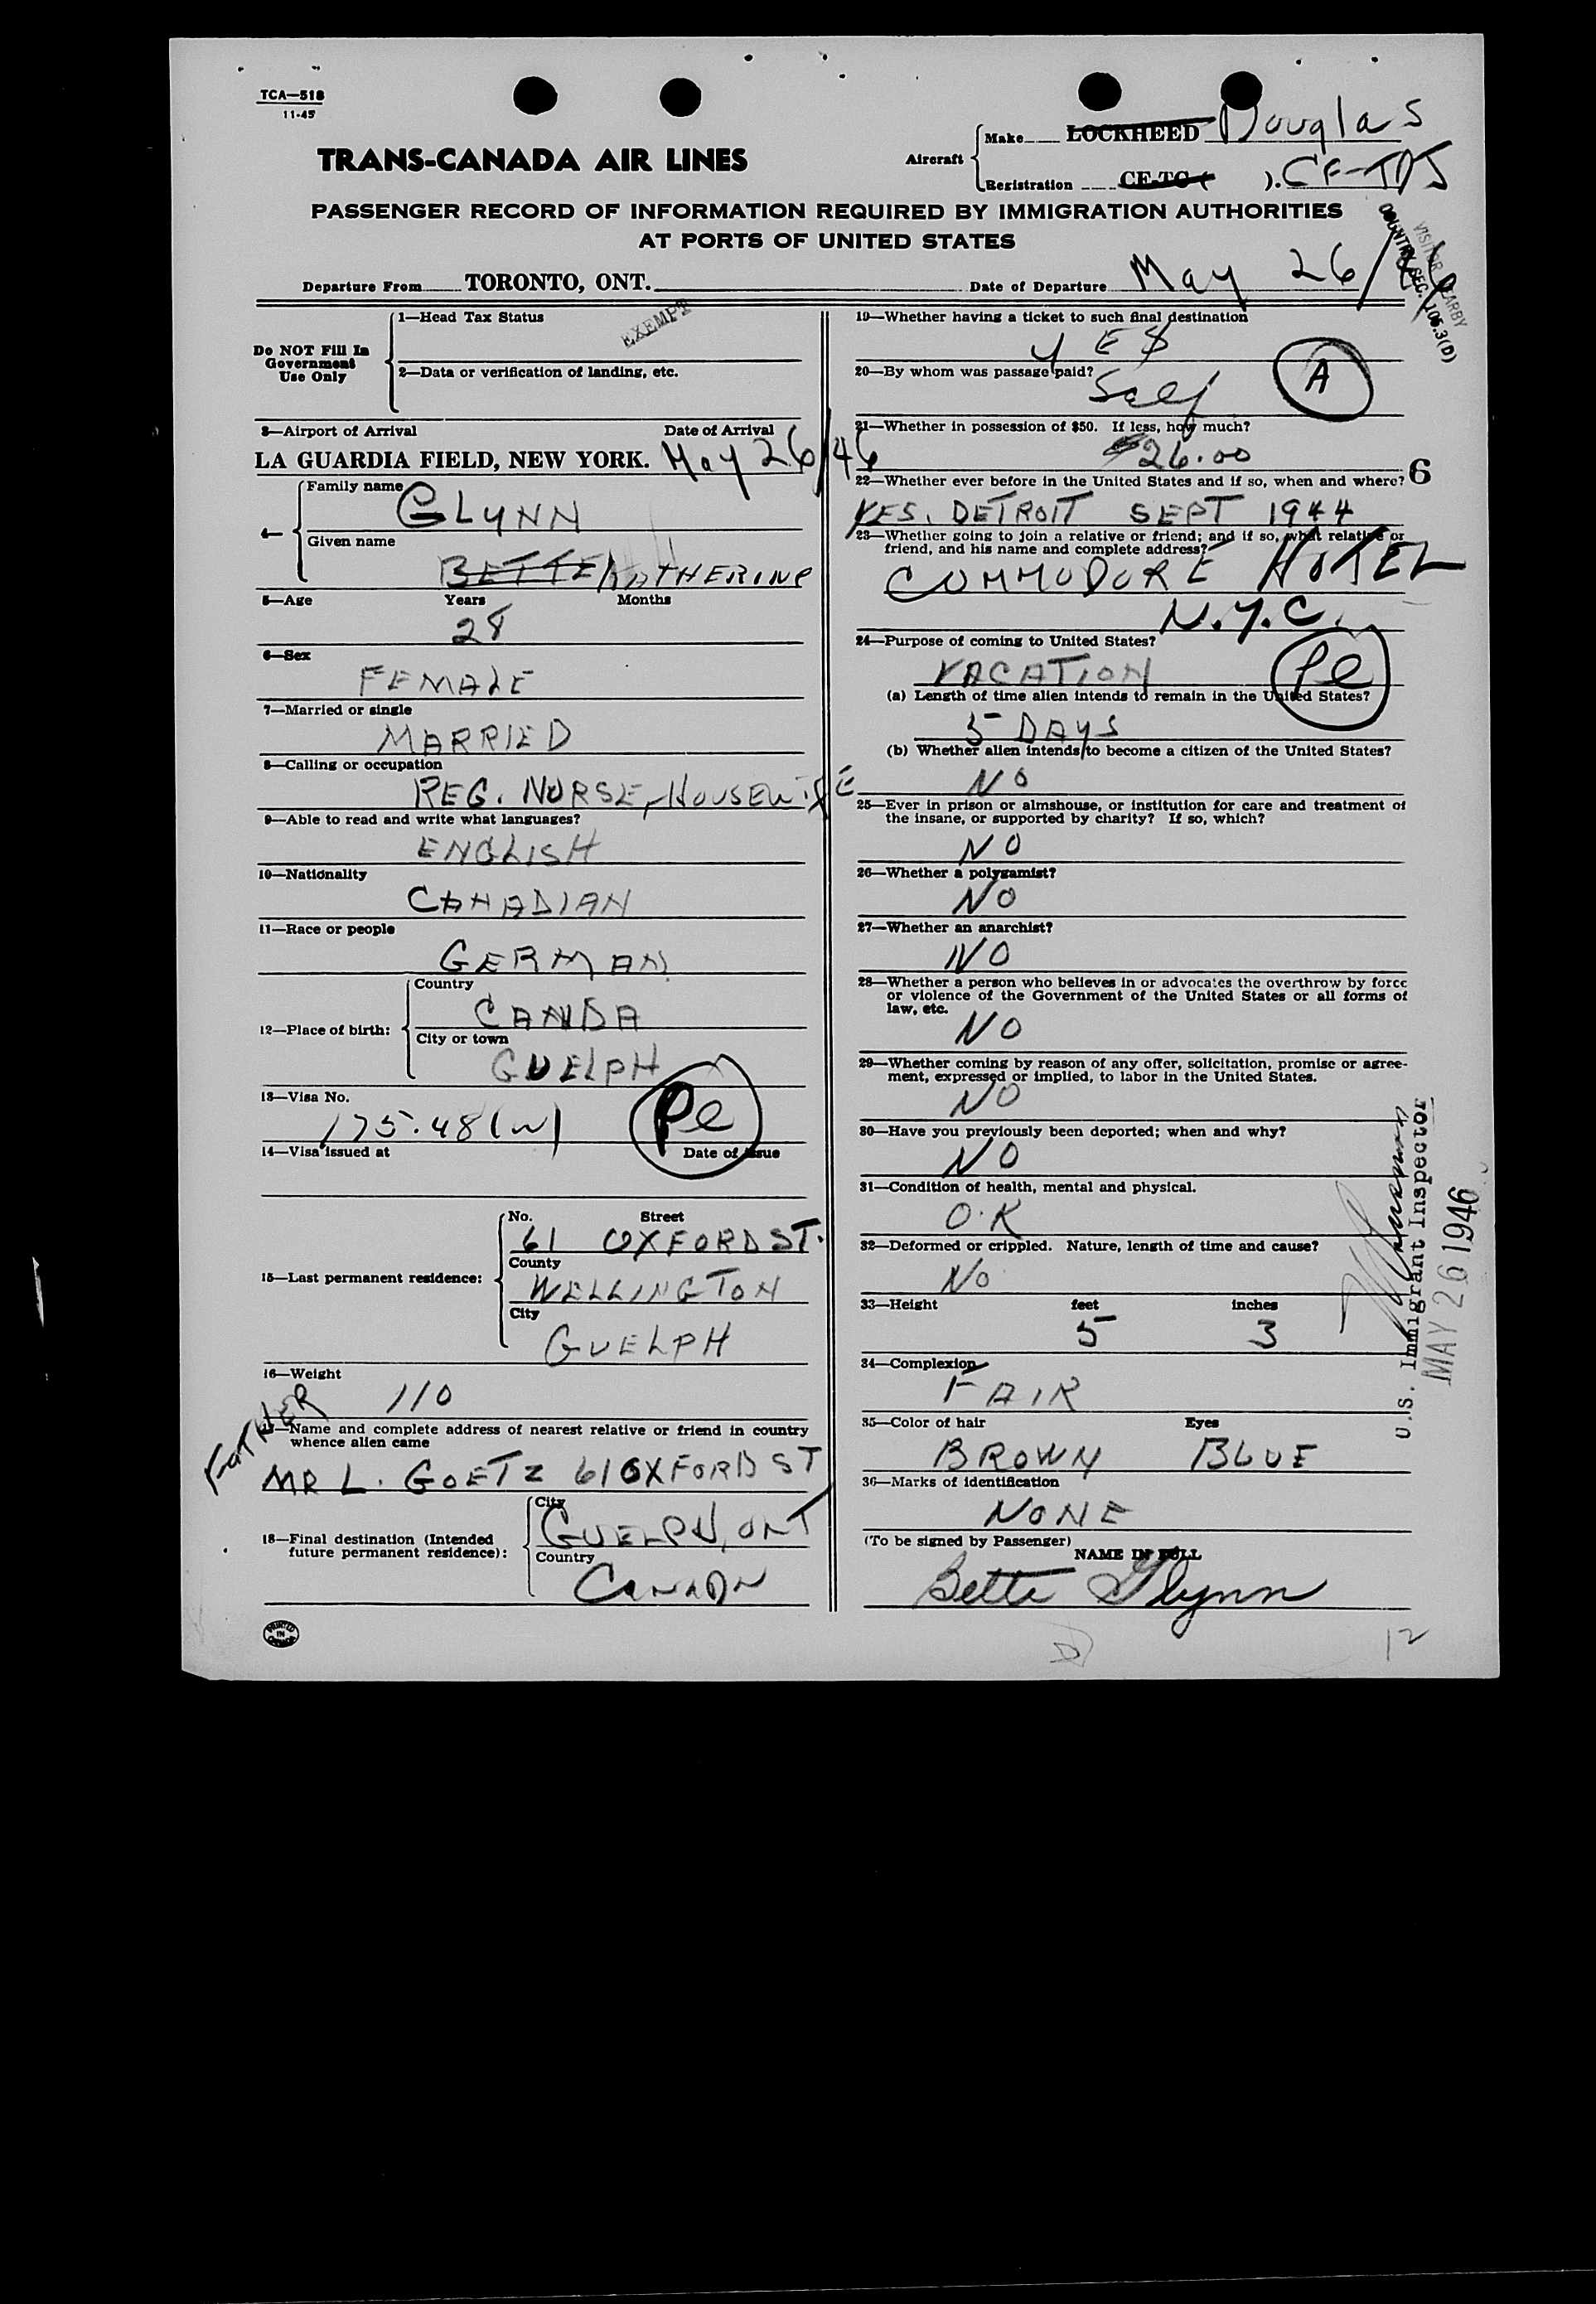 TCA—518
11-45
TRANS-CANADA AIR LINES
Aircraft
Make LOCKHEED Douglas
Registration CF-TC ( ). CF-TDJ
PASSENGER RECORD OF INFORMATION REQUIRED BY IMMIGRATION AUTHORITIES
AT PORTS OF UNITED STATES
Departure From TORONTO, ONT. Date of Departure May 26/46
VISITOR NEARBY
COUNTRY SEC. 106.3(D)
Do NOT Fill In
Government
Use Only
1—Head Tax Status
EXEMPT
2—Data or verification of landing, etc.
3—Airport of Arrival Date of Arrival
LA GUARDIA FIELD, NEW YORK. May 26/46
4—
Family name
GLYNN
Given name
BETTE KATHERINE
5—Age Years Months
28
6—Sex
FEMALE
7—Married or single
MARRIED
8—Calling or occupation
REG. NURSE, HOUSEWIFE
9—Able to read and write what languages?
ENGLISH
10—Nationality
CANADIAN
11—Race or people
GERMAN
12—Place of birth:
Country
CANDA
City or town
GUELPH
13—Visa No.
175.48(w)
Pe
14—Visa issued at Date of issue
15—Last permanent residence:
No. Street
61 OXFORD ST.
County
WELLINGTON
City
GUELPH
16—Weight
110
FATHER
17—Name and complete address of nearest relative or friend in country
whence alien came
MR L. GOETZ 61 OXFORD ST
18—Final destination (Intended
future permanent residence):
City
GUELPH, ONT
Country
CANADA
PRINTED
IN
CANADA
19—Whether having a ticket to such final destination
YES
20—By whom was passage paid?
Self
A
21—Whether in possession of $50. If less, how much?
$26.00
22—Whether ever before in the United States and if so, when and where? 6
YES. DETROIT SEPT 1944
23—Whether going to join a relative or friend; and if so, what relative or
friend, and his name and complete address?
COMMODORE HOTEL
N.Y.C.
24—Purpose of coming to United States?
VACATION
Pe
(a) Length of time alien intends to remain in the United States?
5 DAYS
(b) Whether alien intends to become a citizen of the United States?
NO
25—Ever in prison or almshouse, or institution for care and treatment of
the insane, or supported by charity? If so, which?
NO
26—Whether a polygamist?
NO
27—Whether an anarchist?
NO
28—Whether a person who believes in or advocates the overthrow by force
or violence of the Government of the United States or all forms of
law, etc.
NO
29—Whether coming by reason of any offer, solicitation, promise or agree-
ment, expressed or implied, to labor in the United States.
NO
30—Have you previously been deported; when and why?
NO
31—Condition of health, mental and physical.
O.K
32—Deformed or crippled. Nature, length of time and cause?
No
33—Height feet inches
5 3
34—Complexion
FAIR
35—Color of hair Eyes
BROWN BLUE
36—Marks of identification
NONE
(To be signed by Passenger)
NAME IN FULL
Bette Glynn
U.S. Immigrant Inspector
MAY 26 1946
12